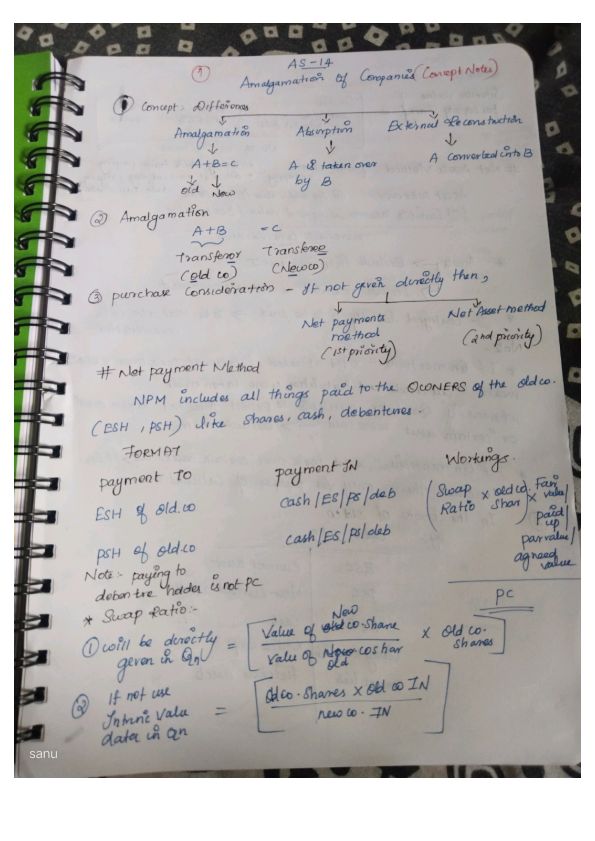 ① AS-14
Amalgamation Of Companies (Concept Notes)
① Concept. Differences
Amalgamation Absorption External Reconstruction
A+B=C A is taken over by B A Converted into B
old New
② Amalgamation
A+B = C
Transferor Transferee
(Old co) (Newco)
③ purchase Consideration - If not given directly then,
Net payments method Net Asset method
(1st priority) (2nd priority)
# Net payment Method
NPM includes all things paid to the OWNERS of the old co.
(ESH, PSH) like shares, cash, debentures.
FORMAT
payment TO payment IN Workings.
ESH of old.co cash/ES/PS/deb (Swap Ratio × old co. Shar) × Fair value/ paid up par value/ agreed value
PSH of old.co cash/ES/PS/deb
Note:- paying to
debentre holder is not PC
PC
* Swap Ratio:-
① will be directly given in Qn = [Value of New co.share / value of old coshar × old co. shares]
② If not use Intrinic Valu data in Qn = [Old co. shares × old co IN / new co. IN]
sanu